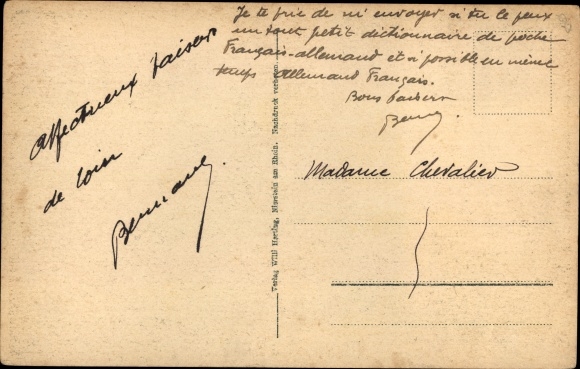 Affectueux baisers
de loin
Bernard.
Je te prie de m'envoyer si tu le peux
un tout petit dictionnaire de poche
Français-allemand et si possible en même
temps allemand Français.
Bons baisers
Madame Chevalier
Verlag Willi Herding, Nierstein am Rhein. Nachdruck verboten.